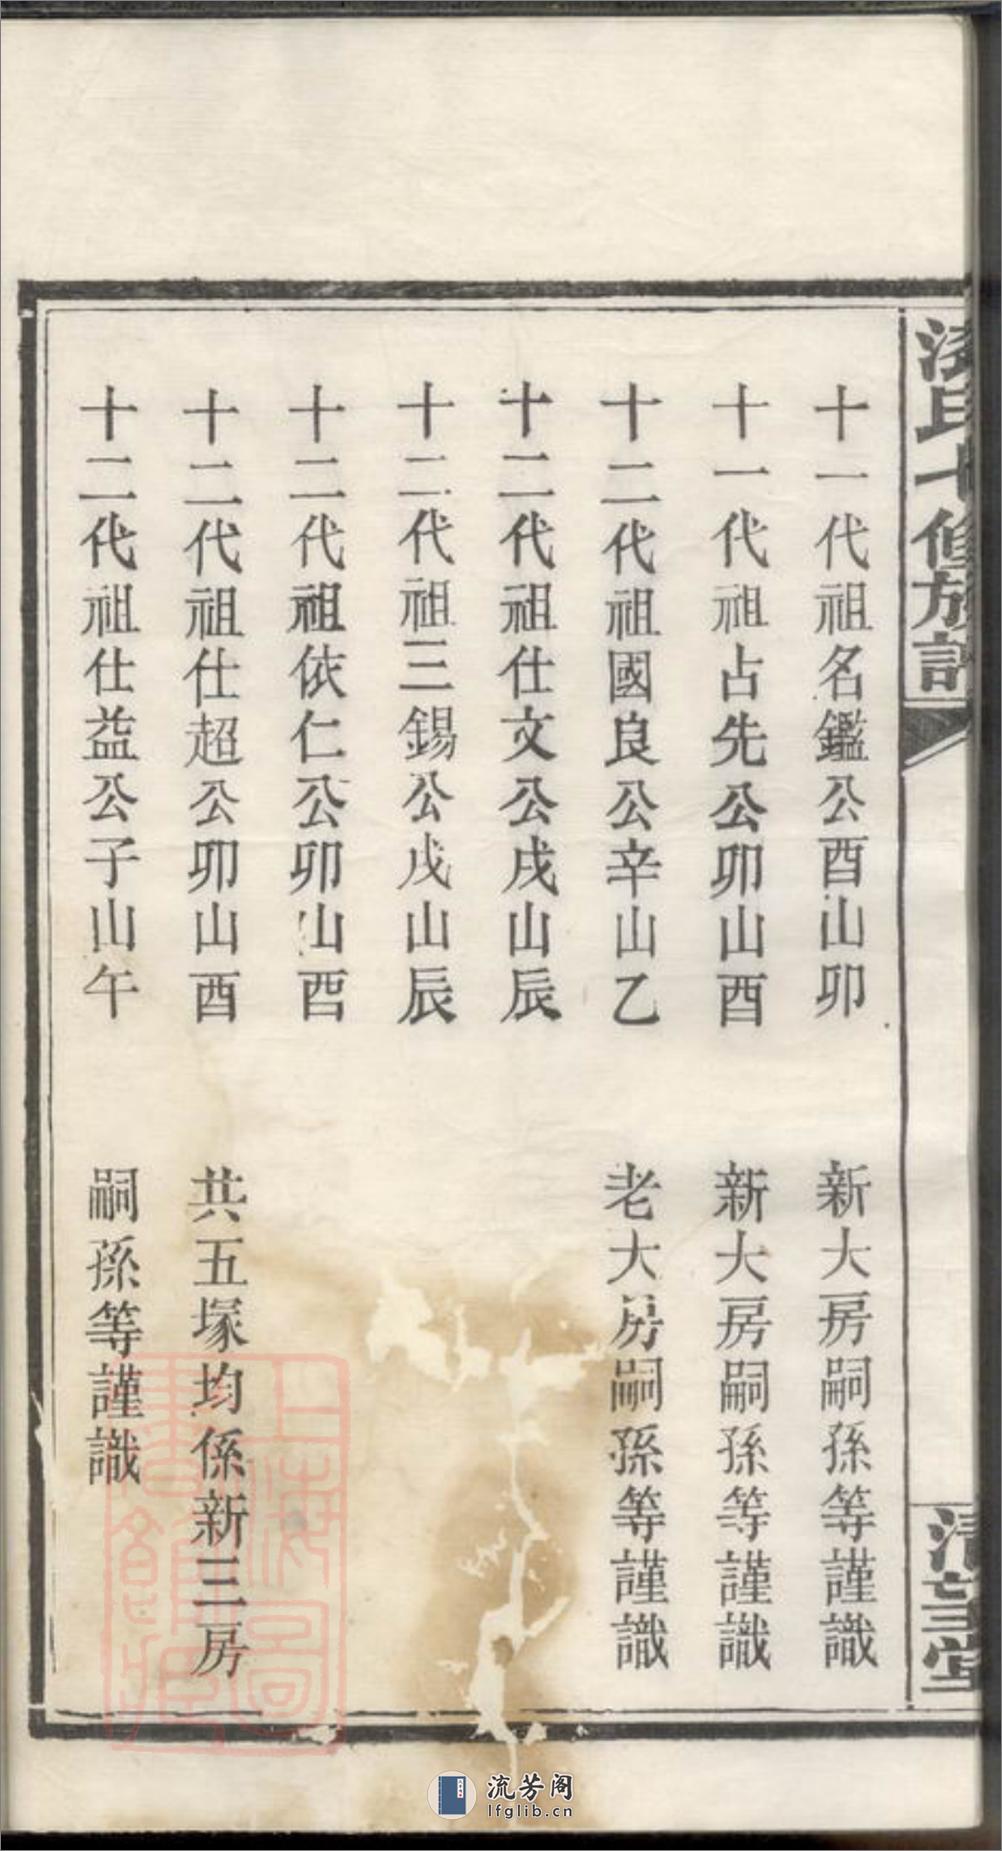 氏七修族譜
清望堂
十一代祖名鑑公酉山卯 新大房嗣孫等謹識
十一代祖占先公卯山酉 新大房嗣孫等謹識
十二代祖國良公辛山乙 老大房嗣孫等謹識
十二代祖仕文公戌山辰
十二代祖三錫公戌山辰
十二代祖依仁公卯山酉
十二代祖仕超公卯山酉 共五塚均係新三房
十二代祖仕益公子山午 嗣孫等謹識
上海圖書館藏
流芳阁
lfglib.cn